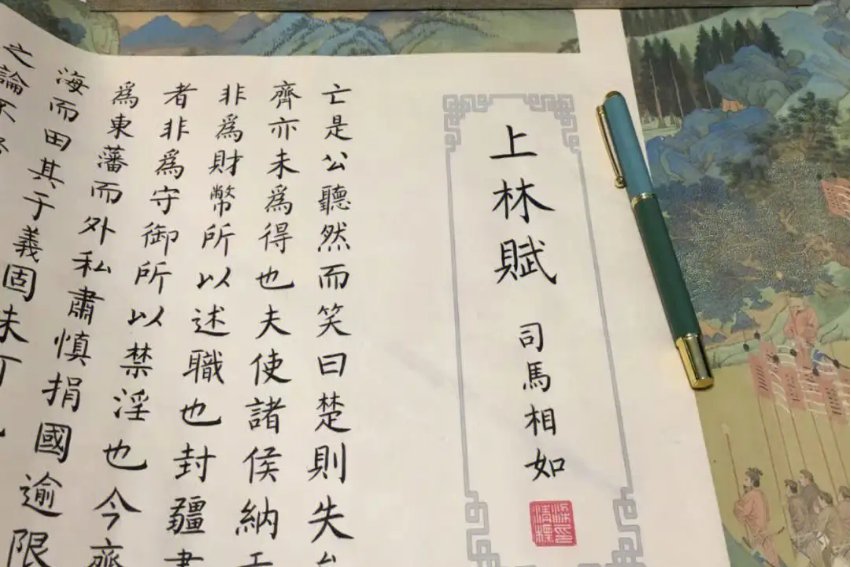 上林賦
司馬相如
亡是公聽然而笑曰楚則失
齊亦未爲得也夫使諸侯納
非爲財幣所以述職也封疆
者非爲守御所以禁淫也今齊
爲東藩而外私肅慎捐國逾限
海而田其于義固未可
之論不